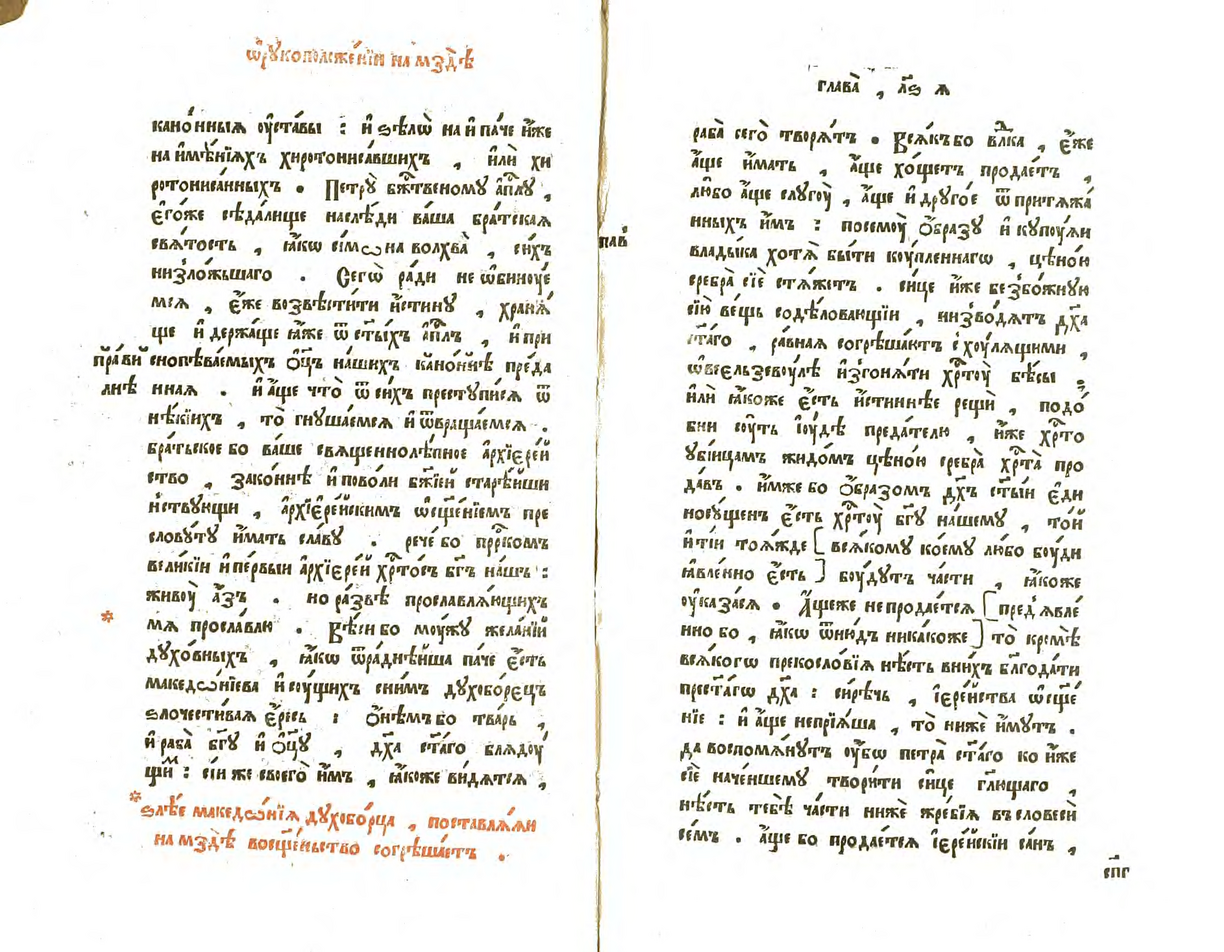 ѿрꙋкоположе́нїи на мздѣ̀
кано́нныѧ оу҆ста́вы : и҆ ѕѣлѡ̀ на и҆ па́че и҆́же
на и҆мѣ́нїѧхъ хиротониса́вшихъ , и҆лѝ хи
ротониса́нныхъ . Петрꙋ̀ бж҃твеномꙋ а҆пⷭ҇лꙋ ,
є҆го́же сѣда́лище наслѣ́ди ва́ша бра́тскаѧ
свѧ́тость , ꙗ҆́кѡ си́мѡна волхва̀ , си́хъ
низло́жьшаго . Сегѡ̀ ра́ди не ѡ҆бинꙋ́е
мсѧ , є҆́же возвѣсти́ти и҆́стинꙋ , хранѧ́
ще и҆ держа́ще ꙗ҆́же ѿ ст҃ы́хъ а҆пⷭ҇лъ , и҆ при
снопѣва́емыхъ ѻ҆ц҃ъ на́шихъ кано́ннѣ преда
нная . и҆ а҆́ще что̀ ѿ си́хъ престꙋпи́сѧ ѿ
нѣ́кїихъ , то̀ гнꙋша́емсѧ и҆ ѿвраща́емсѧ .
бра́тьское бо ва́ше свѧщеннолѣ́пное а҆рхїере́й
ство , зако́ннѣ и҆ поволи бж҃їей старѣ́йши
нствꙋющи , а҆рхїере́йскимъ ѡ҆сщ҃е́нїемъ пре
словꙋ́тꙋ и҆́мать сла́вꙋ . рече́ бо прⷪ҇ркомъ
вели́кїи и҆ пе́рвыи а҆рхїере́й хрⷭ҇то́съ бг҃ъ на́шъ :
живꙋ̀ а҆́зъ . но ра́звѣ прославлѧ́ющихъ
мѧ̀ просла́влю . Вѣ́си бо мꙋ́жꙋ жела́нїй
дꙋхо́вныхъ , ꙗ҆́кѡ ѿра́днѣйша па́че є҆́сть
македѡ́нїева и҆ сꙋ́щихъ сни́мъ дꙋхобо́рецъ
ѕлочести́ваѧ є҆́ресь : ѻ҆нѣ́мъ бо тва́рь ,
и҆ раба̀ бг҃ꙋ и҆ ѻ҆ц҃ꙋ̀ , дх҃а ст҃а́го блѧдꙋ́
щи : сі́и же своего̀ и҆̀мъ , ꙗ҆́коже ви́дѧтсѧ ,
пра́вил
лнѣ
ѕлѣ́е македѡ́нїѧ дꙋхобо́рца , поставлѧ́ѧи
на мздѣ̀ восщ҃е́ньство согрѣша́етъ .
глава̀ , л҃ѕ ѧ
раба̀ сего̀ творѧ́тъ . Всѧ́къ бо влⷣка , є҆́же
а҆́ще и҆́мать , а҆́ще хо́щетъ продае́тъ ,
лю́бо а҆́ще слꙋгꙋ̀ , а҆́ще и҆ дрꙋго́е ѿ притѧжа́
нныхъ и҆́мъ : посемꙋ̀ ѻ҆́бразꙋ и҆ кꙋпꙋ́ѧи
влады́ка хотѧ̀ бы́ти кꙋ́пленнагѡ , цѣно́ю
сребра̀ сїѐ стѧ́жетъ . си́це и҆́же безбо́жнꙋю
сїю̀ ве́щь содѣ́ловающїи , низво́дѧтъ дх҃а
ст҃а́го , ра́внаѧ согрѣша́ютъ с хꙋ́лѧщими ,
ѡ҆ веельзевꙋ́лѣ и҆згонѧ́ти хрⷭ҇тꙋ̀ бѣ́сы ,
и҆лѝ ꙗ҆́коже є҆́сть и҆́стиннѣе рещѝ , подо́
бни сꙋ́ть і҆ꙋ́дѣ преда́телю , и҆́же хрⷭ҇то
ꙋбі́йцамъ жидо́мъ цѣно́ю сребра̀ хрⷭ҇та̀ про
да́въ . и҆́мже бо ѻ҆́бразомъ дх҃ъ ст҃ы́и є҆ди
носꙋ́щенъ є҆́сть хрⷭ҇тꙋ̀ бг҃ꙋ на́шемꙋ , то́й
и҆ ті́и тоѧ́жде [ всѧ́комꙋ ко́емꙋ лю́бо бꙋ́ди
ꙗ҆вле́нно є҆́сть ] бꙋ́дꙋтъ ча́сти , ꙗ҆́коже
оу҆каза́сѧ . А҆́щеже не продае́тсѧ [ пред̾ѧвле́
нно бо , ꙗ҆́кѡ ѿню́дъ ника́коже ] то̀ кро́мѣ
всѧ́когѡ прекосло́вїѧ нѣ́сть вни́хъ блгⷣа́ти
прест҃а́гѡ дх҃а : си́рѣчь , і҆ере́йства ѡ҆сщ҃е́
нїе : и҆ а҆́ще непрїѧ́ша , то̀ нижѐ и҆́мꙋтъ .
да воспомѧ́нꙋтъ оу҆́бѡ петра̀ ст҃а́го ко и҆́же
сїѐ наче́ншемꙋ твори́ти си́це гл҃ющаго ,
нѣ́сть тебѣ̀ ча́сти нижѐ жре́бїѧ въ словесѝ
се́мъ . а҆́ще бо продае́тсѧ і҆ере́йскїи са́нъ ,
пав
спг